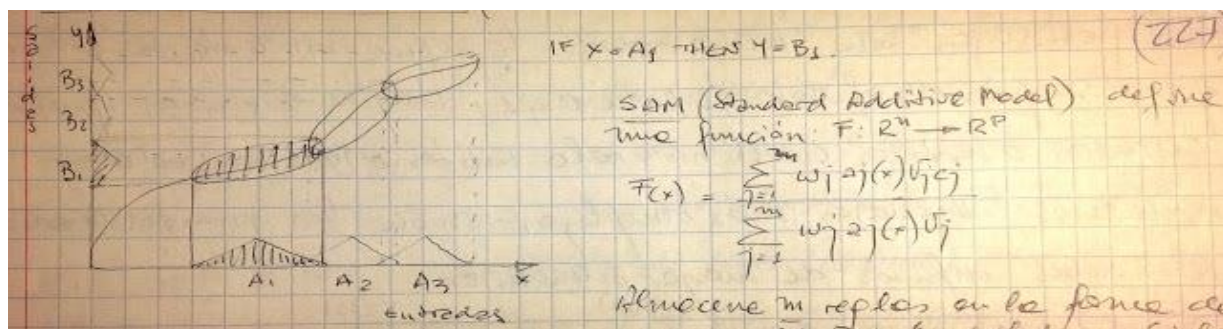 (227)
Salidas
Y
B3
B2
B1
A1 A2 A3 x
Entradas
IF X = A1 THEN Y = B1.
SAM (Standard Additive Model) define
una función: F: R^n → R^p
F(x) = \frac{\sum_{j=1}^{m} w_j a_j(x) V_j c_j}{\sum_{j=1}^{m} w_j a_j(x) V_j}
Almacena m reglas en la forma de